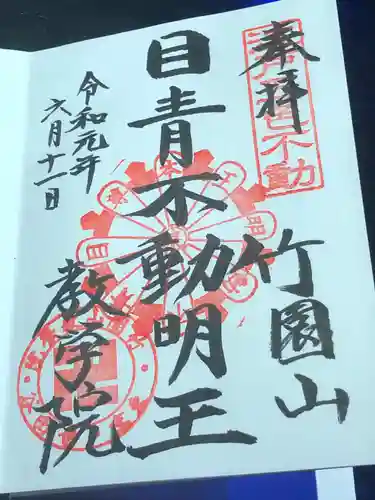 奉拝
竹園山
目青不動明王
令和元年
六月十一日
教学院